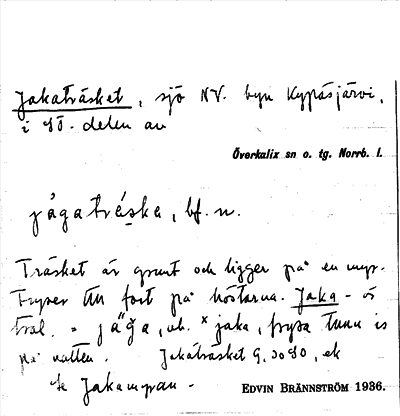 Jakaträsket, sjö NV. byn Kypåsjärvi,
i SÖ. delen av
Överkalix sn o. tg. Norrb. l.
jågatrǻska, bf. n.
Träsket är grunt och ligger på en myr.
Fryser till fort på höstarna. Jaka - ös
jäǧa, vb. × jaka, frysa tunn is
på natten. Jakaträsket G.
se Jakamyran -
EDVIN BRÄNNSTRÖM 1936.